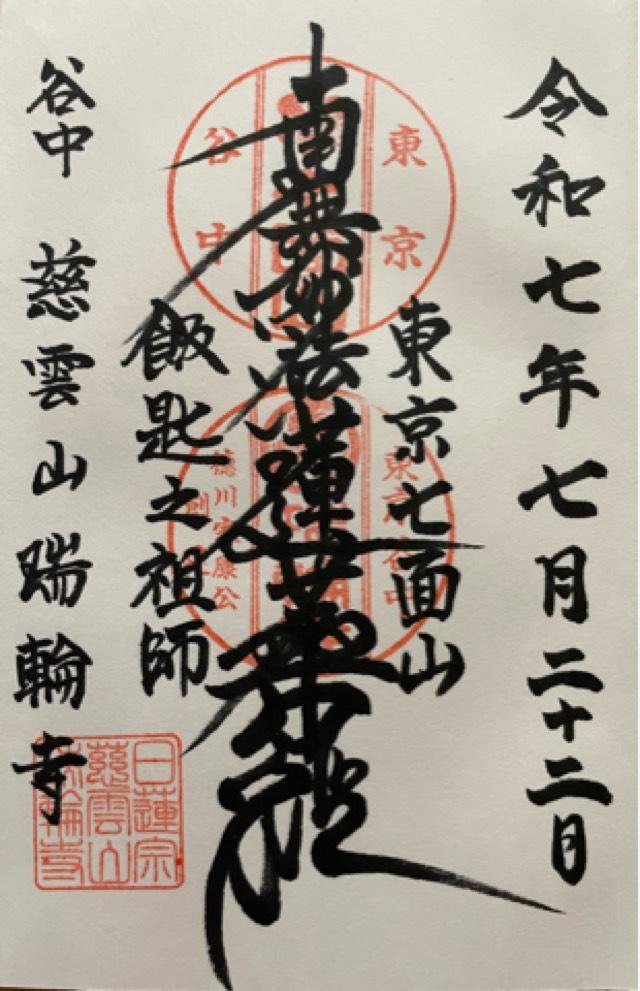 令和七年七月二十二日
東京七面山
南無妙法蓮華経
飯匙之祖師
谷中 慈雲山瑞輪寺
東京
谷中
東京谷中
徳川家康公
日蓮宗
慈雲山
瑞輪寺